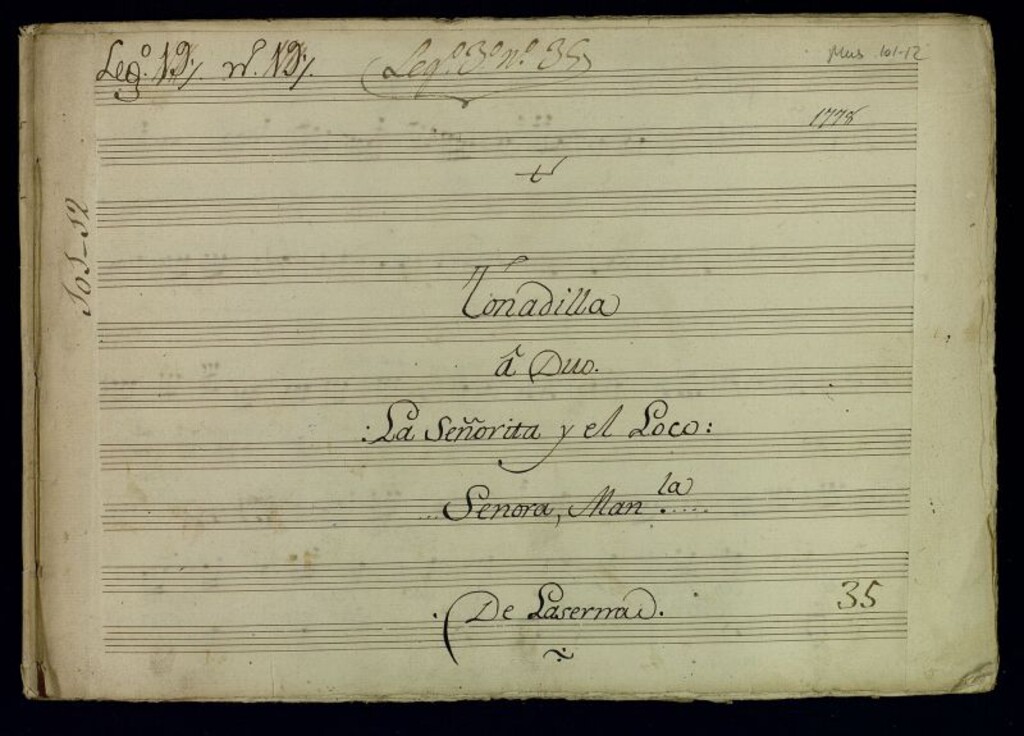 Leg.º 19. n.º 19.
(Leg.º 3.º n.º 35)
Mus 101-12
1778
Tonadilla
â Duo.
:La Señorita y el Loco:
Senora, Man.la
De Laserna.
35